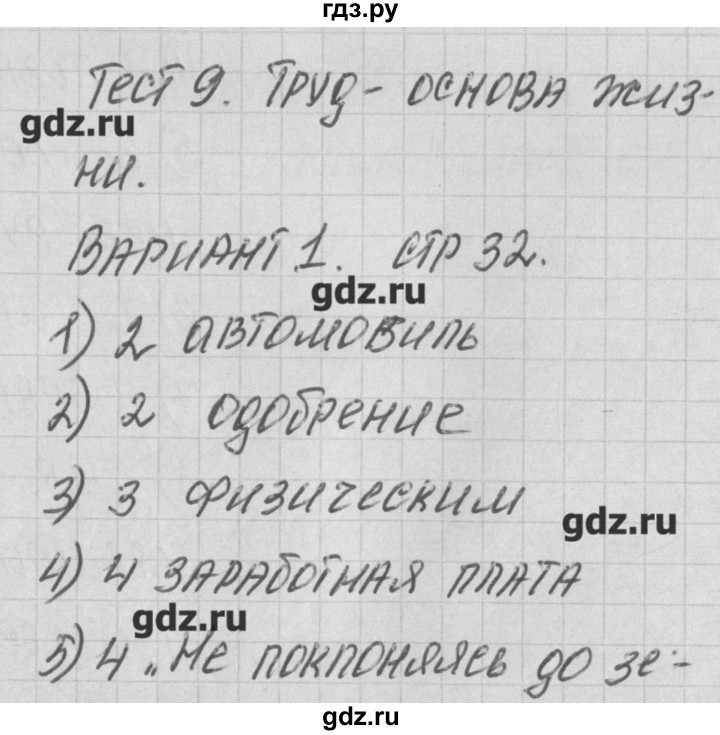 гдз.ру
Тест 9. Труд - основа жиз-
gdz.ru
ни.
Вариант 1. стр 32.
gdz.ru
1) 2 автомобиль
2) 2 одобрение
3) 3 физическим
gdz.ru
4) 4 заработная плата
gdz.ru
5) 4 „Не поклоняясь до зе-
gdz.ru